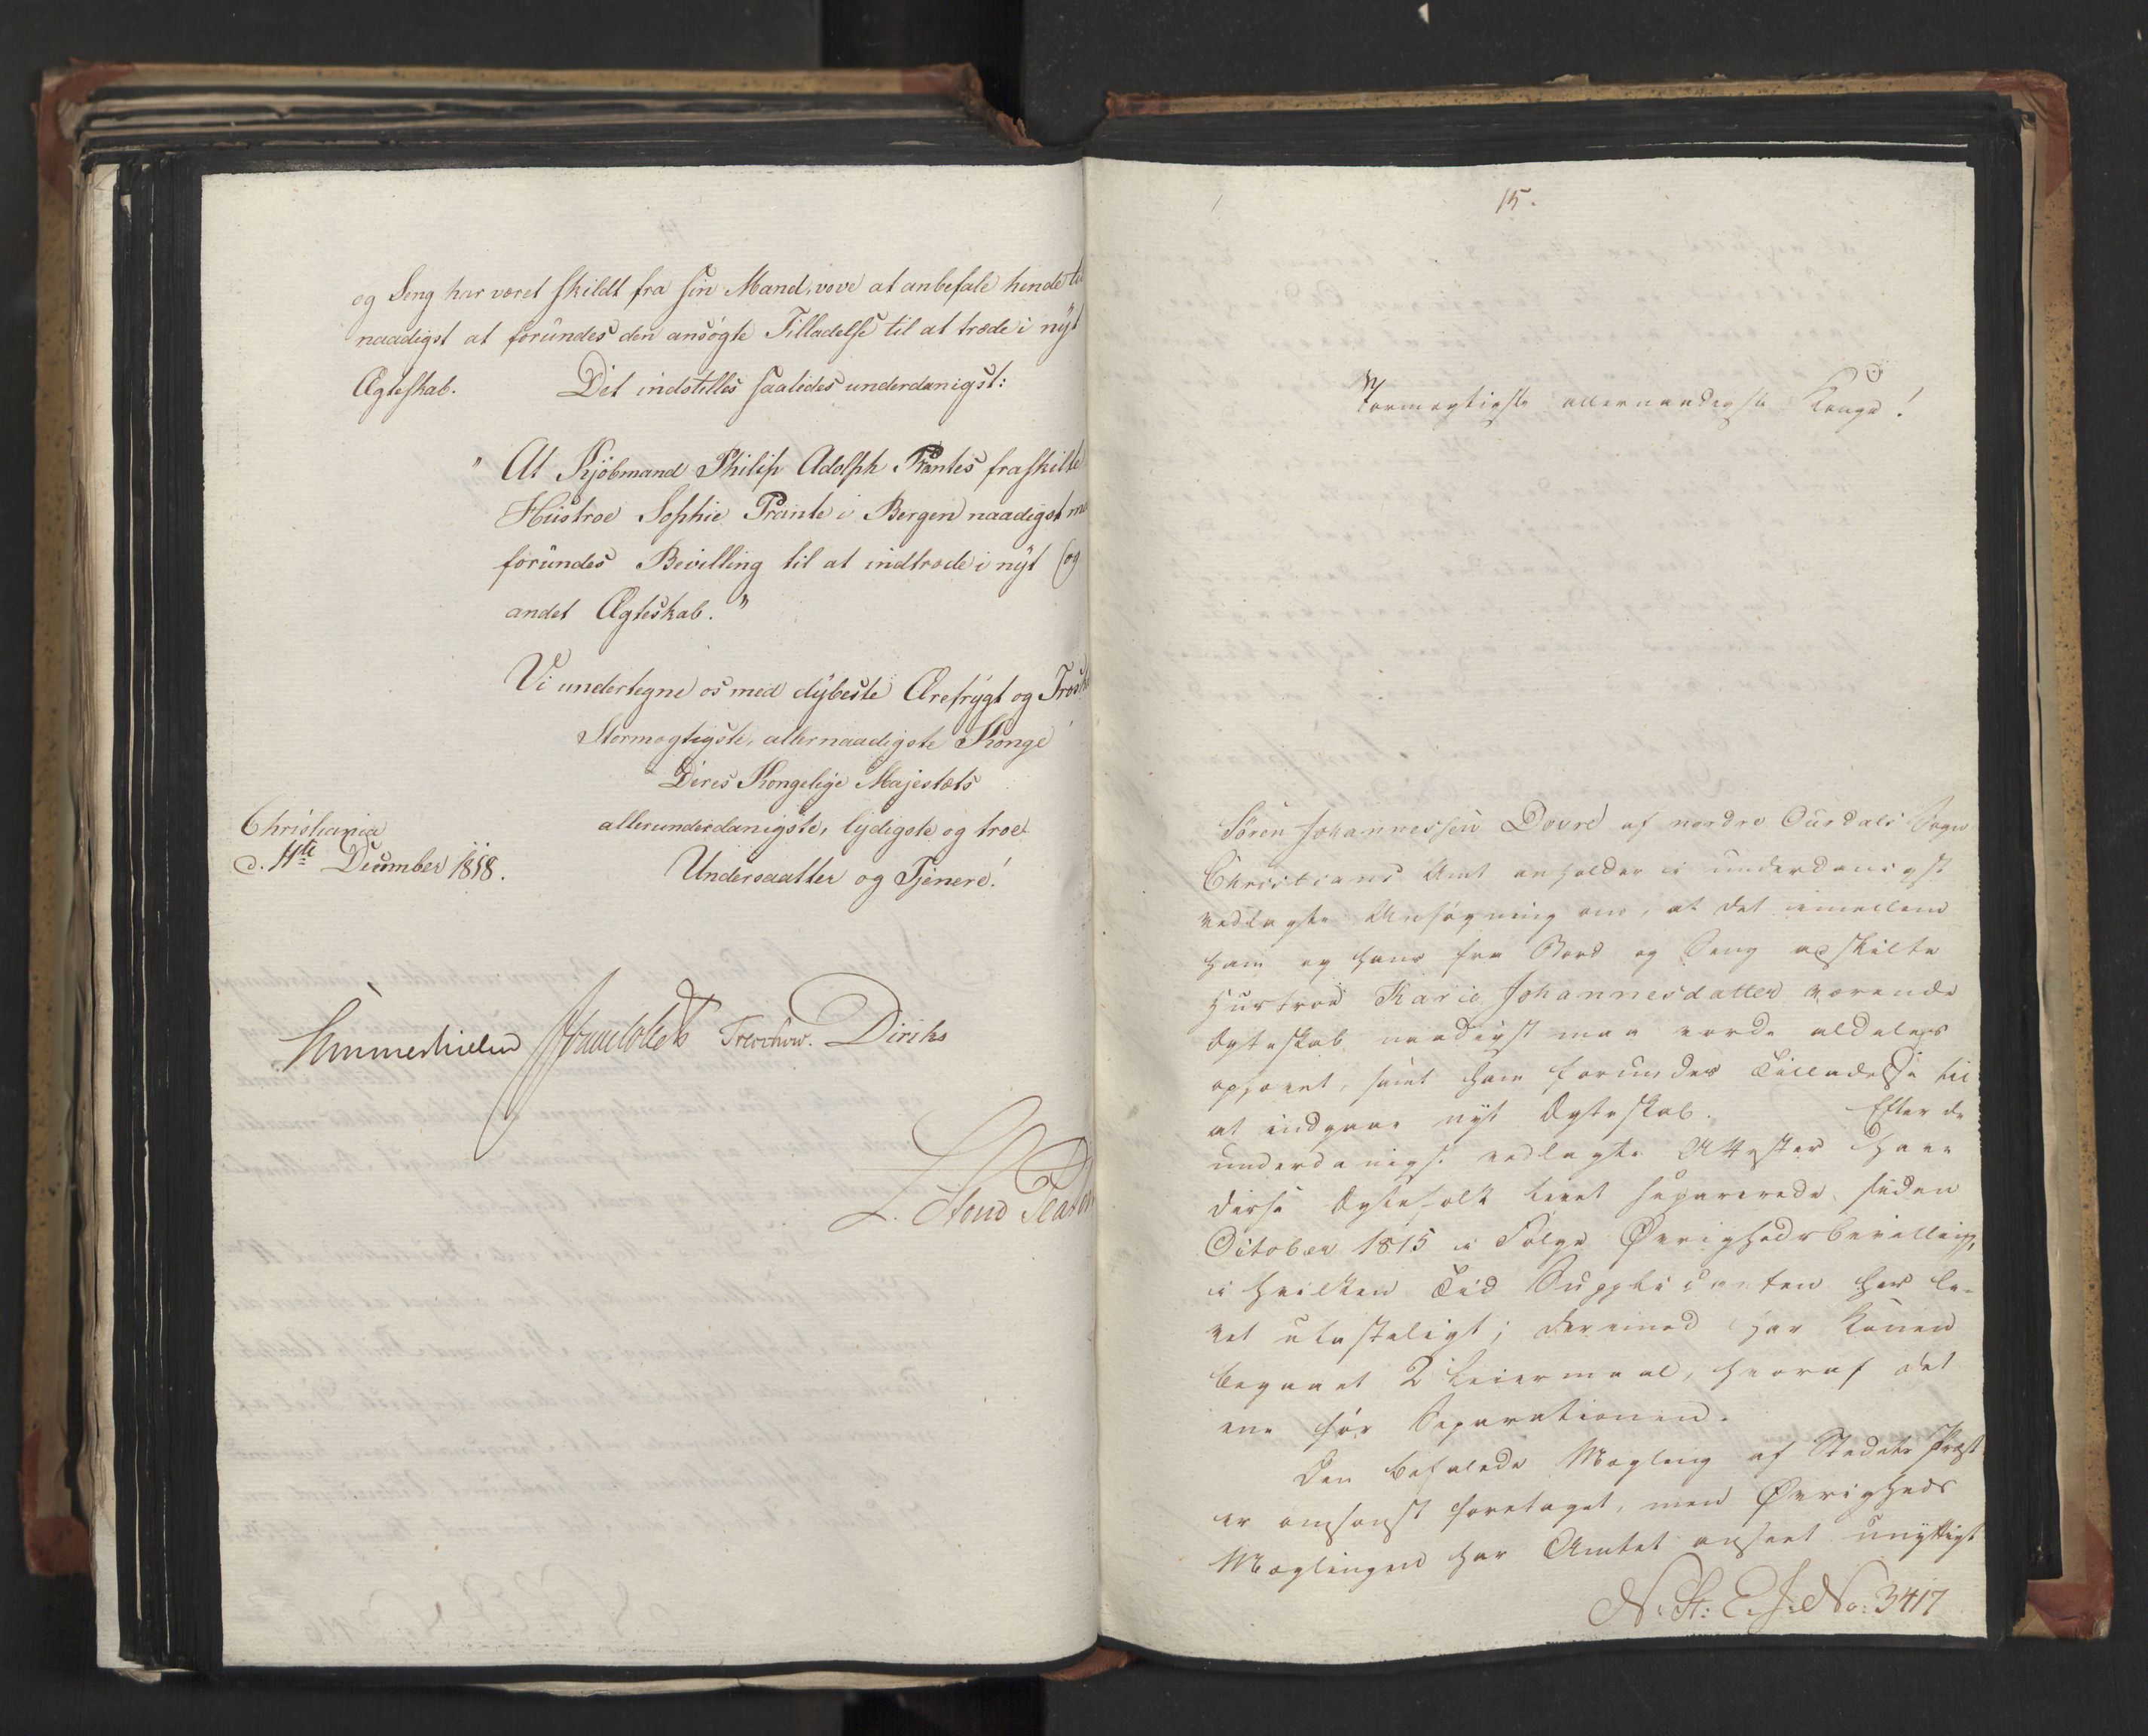 og Seng har været skildt fra sin Mand, vove at anbefale hende til
naadigst at forundes den ansøgte Tilladelse til at træde i nyt
Ægteskab. Det indstilles saaledes underdanigst:
" At Kjøbmand Philip Adolph Prantes fraskilte
Hustroe Sophie Prante i Bergen naadigst maa
forundes Bevilling til at indtræde i nyt (og
andet Ægteskab."
Vi undertegne os med dybeste Ærefrygt og Troskab
Stormægtigste, allernaadigste Konge
Deres Kongelige Majestæts
allerunderdanigste, lydigste og troe
Undersaatter og Tjenere!
Christiania
d. 11te December 1818.
Sommerhielm Treschow. Diriks
L. Stoud Platou
15.
Stormægtigste allernaadigste Konge!
Søren Johannessen Dovre af nordre Ourdals Sogn
Christians Amt anholder i underdanigst
vedlagte Ansøgning om, at det imellem
ham og hans fra Bord og Seng adskilte
Hustroe Karie Johannesdatter værende
Ægteskab naadigst maa vorde aldeles
ophævet, samt ham forundes Tilladelse til
at indgaae nyt Ægteskab. Efter de
underdanigst vedlagte Attester have
disse Ægtefolk levet separerede siden
October 1815 i Følge Øvrighedsbevilling,
i hvilken Tid Supplicanten har le-
vet ulasteligt; derimod har Konen
begaaet 2 Leiermaal, hvoraf det
ene før Separationen.
Den befalede Mægling af Stedets Præst
er omsonst foretaget, men Øvrigheds
Mæglingen har Amtet anseet unyttigt
N. St: E. J. No: 3417